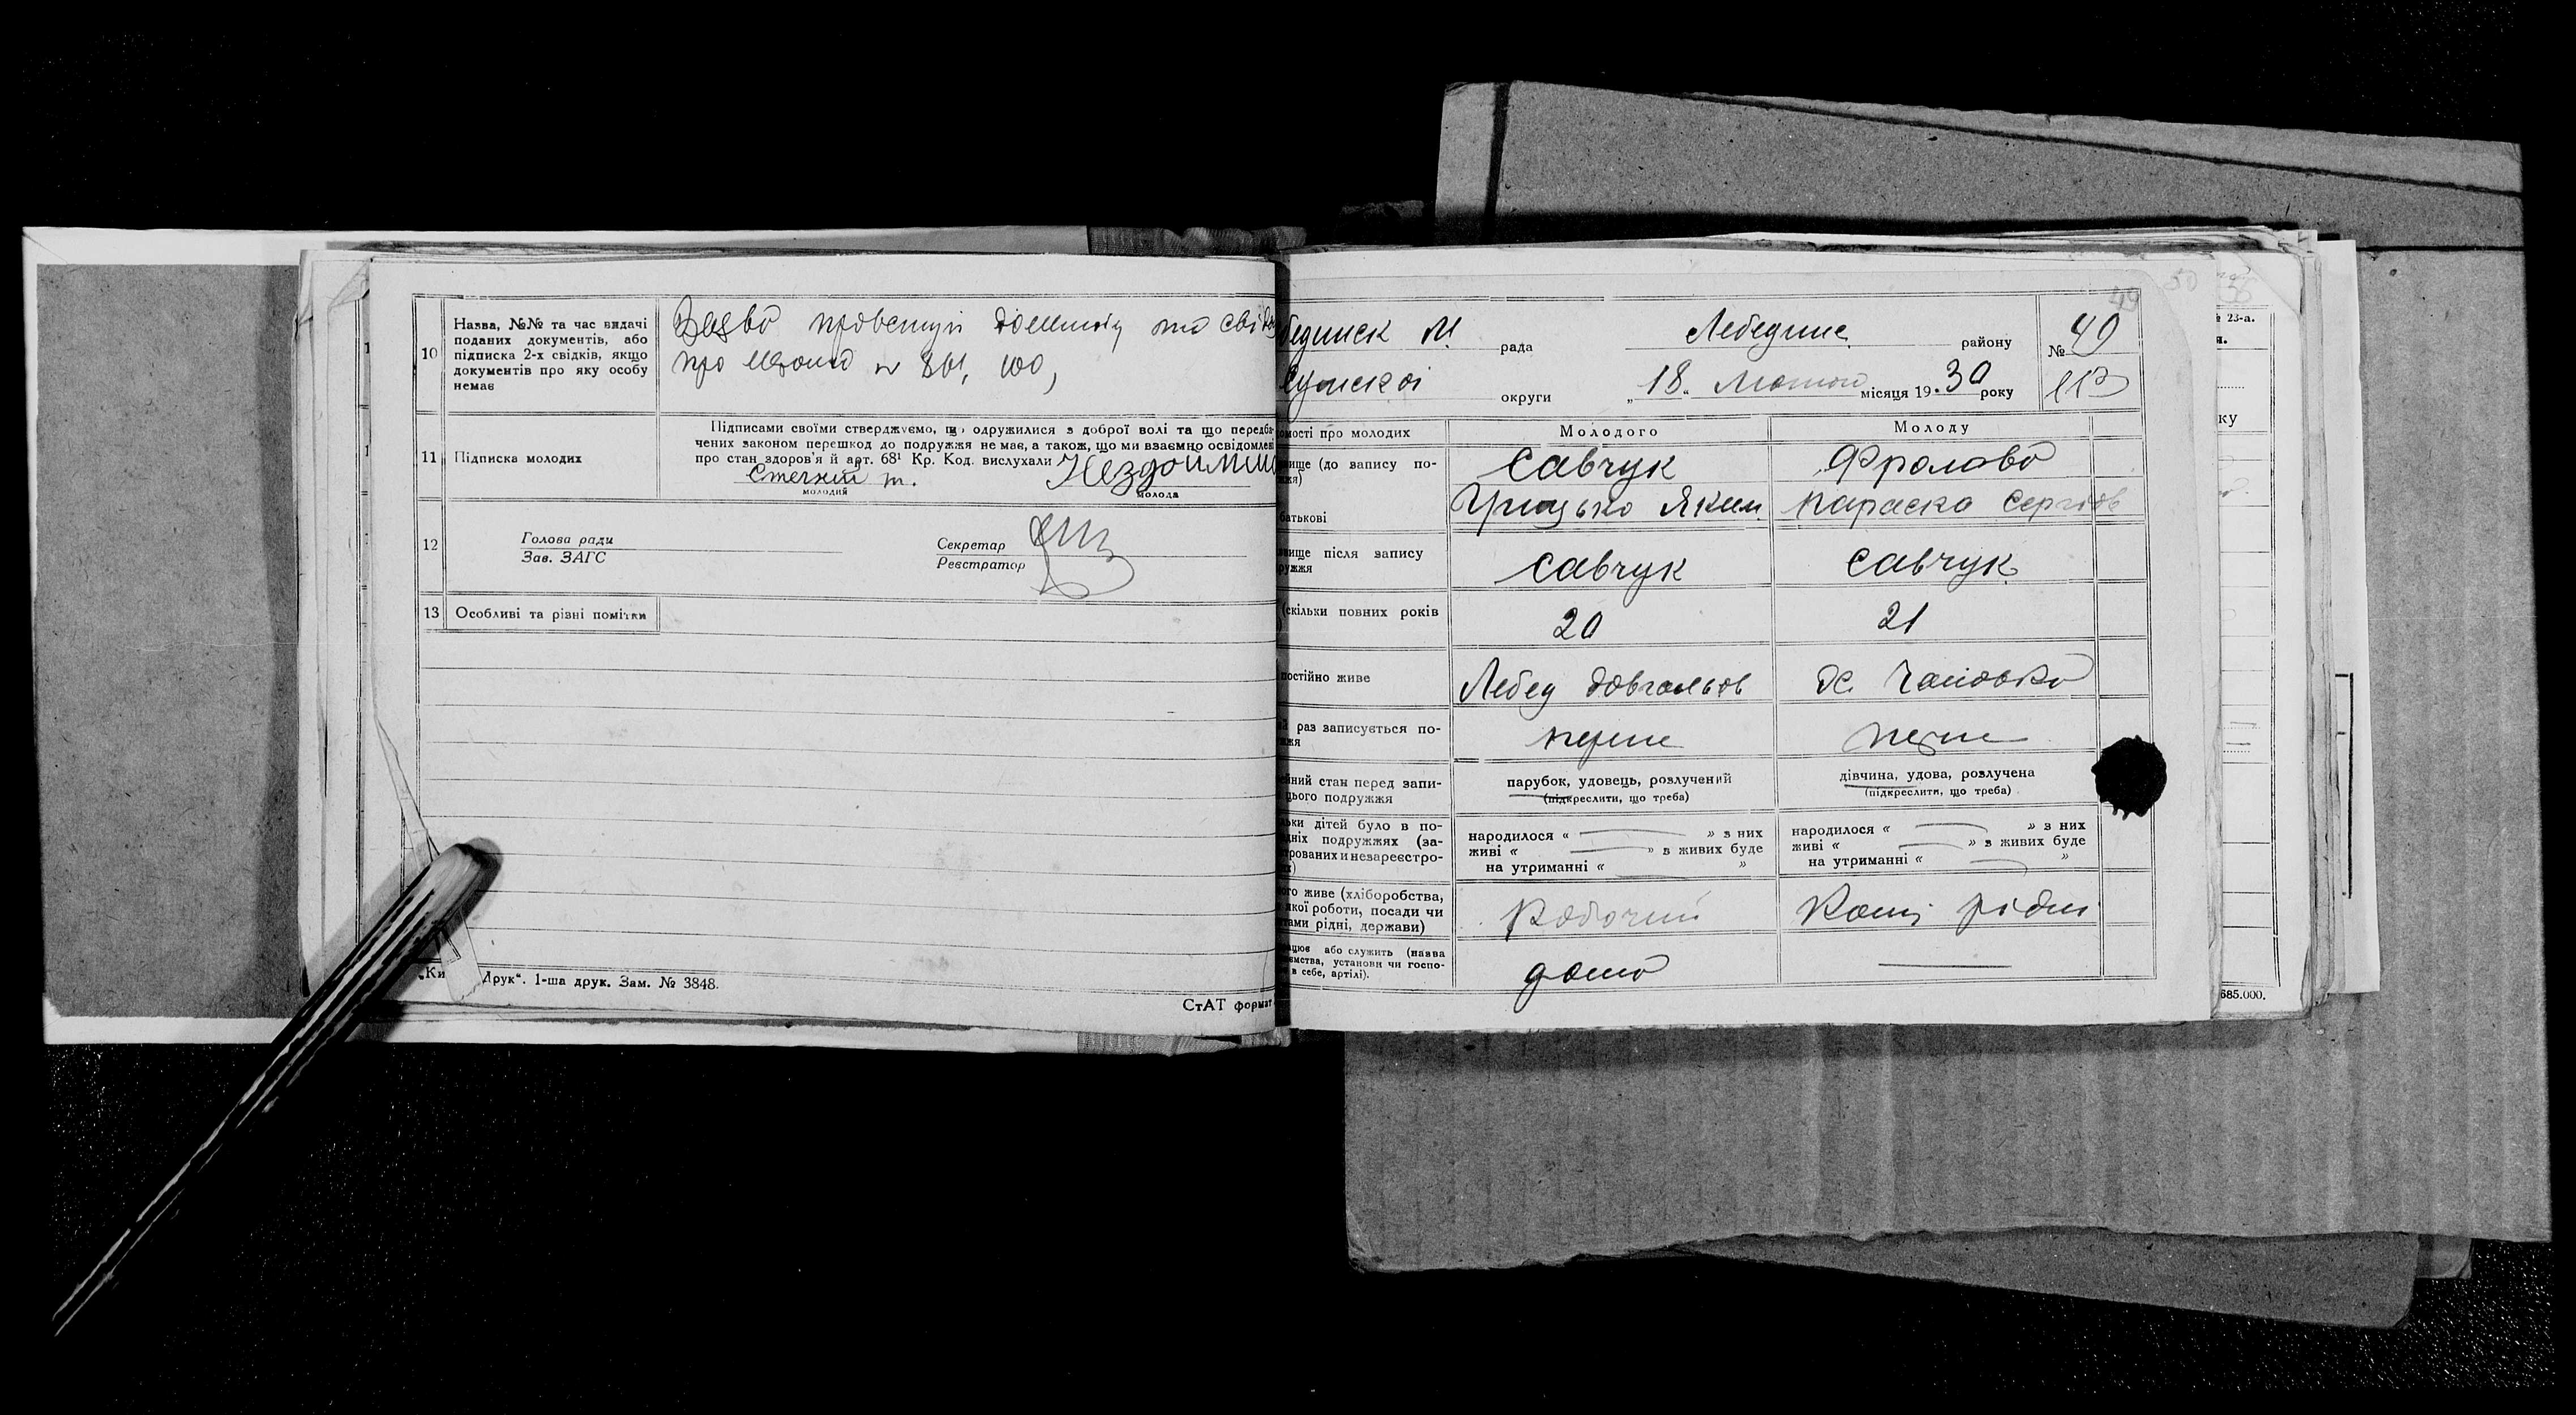 10
Назва, №№ та час видачі
поданих документів, або
підписка 2-х свідків, якщо
документів про яку особу
немає
та свід
про № 861, 100,
11
Підписка молодих
Підписами своїми стверджуємо, що одружилися з доброї волі та що передба-
чених законом перешкод до подружжя немає, а також, що ми взаємно освідомлені
про стан здоров'я й арт. 68¹ Кр. Код. вислухали
молодий
молода
12
Голова ради
Зав. ЗАГС
Секретар
Реєстратор
13
Особливі та різні помітки
Друк". 1-ша друк. Зам. № 3848.
СтАТ формат
50
49
бединск М. рада
Лебединс району
№ 49
Сумскоі округи
„18„ Лютого місяця 19.30 року
113
омості про молодих
Молодого
Молоду
вище (до запису по-
жя)
Савчук
Фролова
батькові
Грицько Яким
Параска Сергіів
звище після запису
ружжя
Савчук
Савчук
(скільки повних років
20
21
постійно живе
Лебед
раз записується по-
жжя
перше
перше
ейний стан перед запи-
цього подружжя
парубок, удовець, розлучений
(підкреслити, що треба)
дівчина, удова, розлучена
(підкреслити, що треба)
льки дітей було в по-
дніх подружжях (за-
трованих и незареєстро-
х)
народилося « » з них
живі « » в живих буде
на утриманні « »
народилося « » з них
живі « » в живих буде
на утриманні « »
ого живе (хліборобства,
якої роботи, посади чи
тами рідні, держави)
Робочий
Кошт рідні
ацює або служить (назва
ємства, установи чи госпо-
в себе, артілі).
дома
№ 23-а.
ку
685.000.